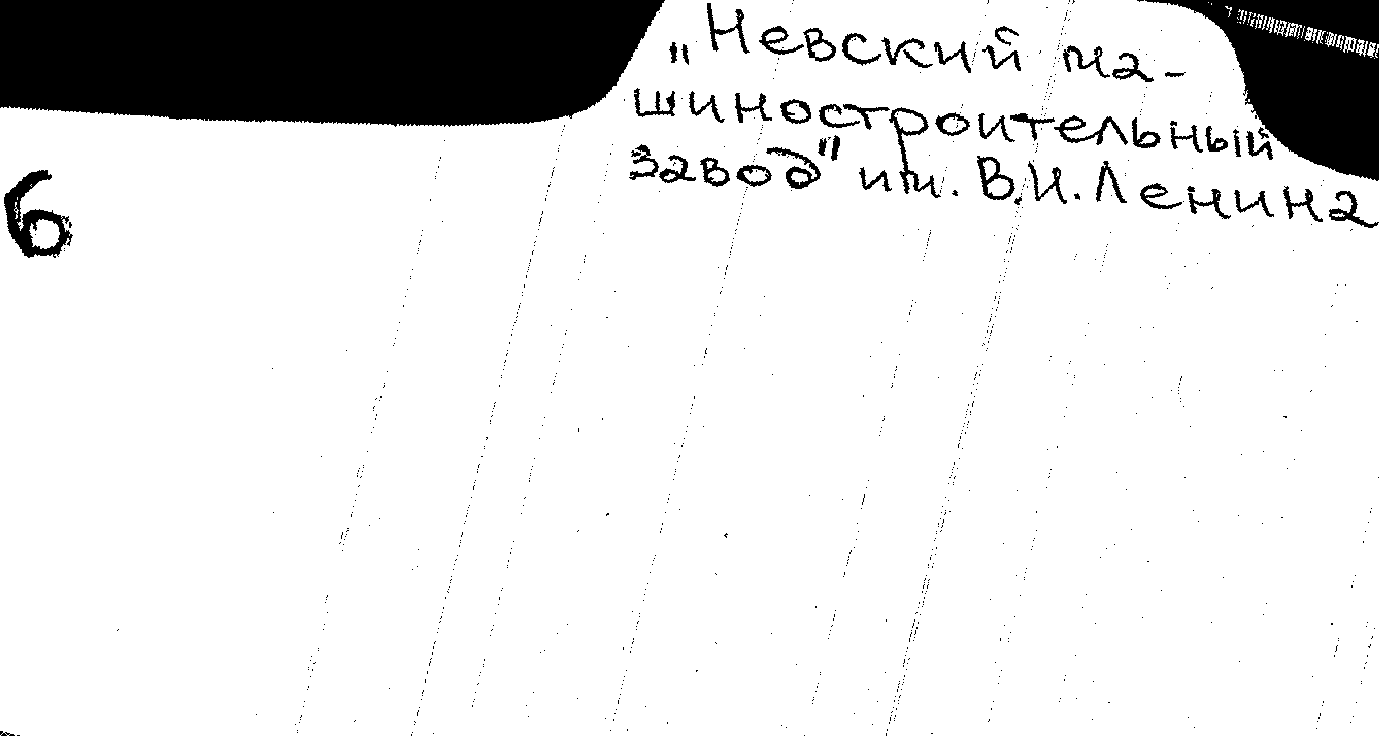 "Невский ма-
шиностроительный
завод" им. В.И. Ленина
6